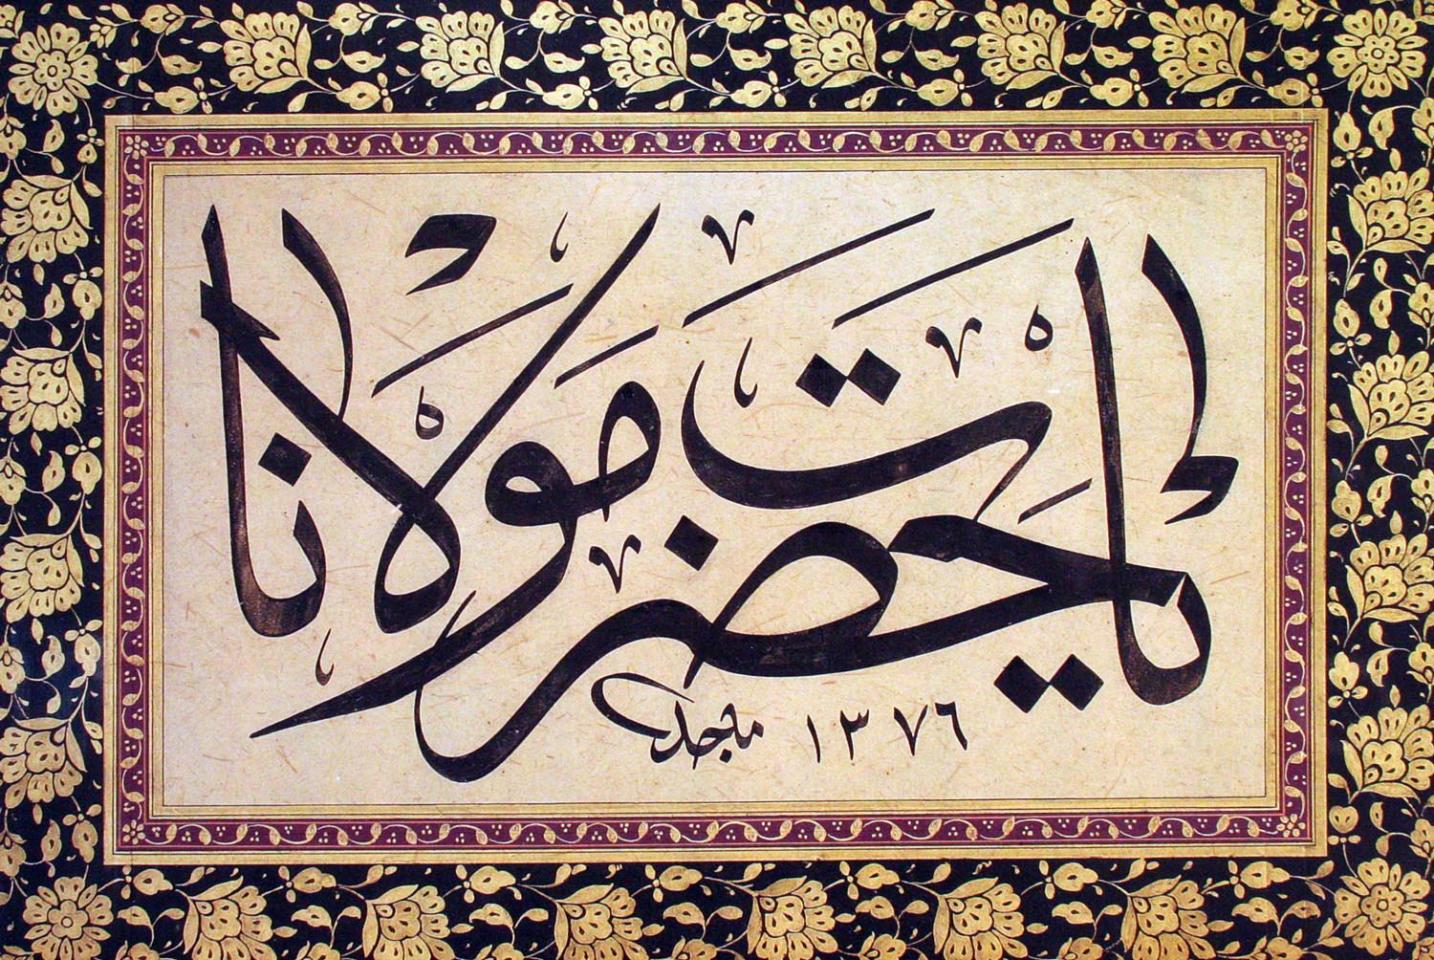 يا حضرت مولانا
١٣٧٦ ماجد